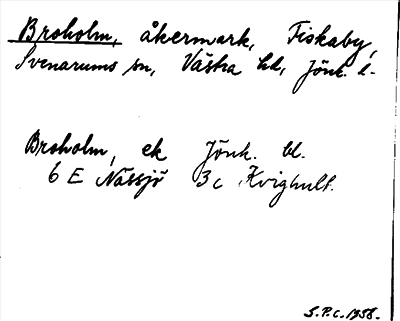 Broholm, åkermark, Fiskaby,
Svenarums sn, Västra hd, Jönk. l.
Broholm, ek Jönk. bl.
6 E Nässjö 3 c Kvighult.
S.P.C. 1958.